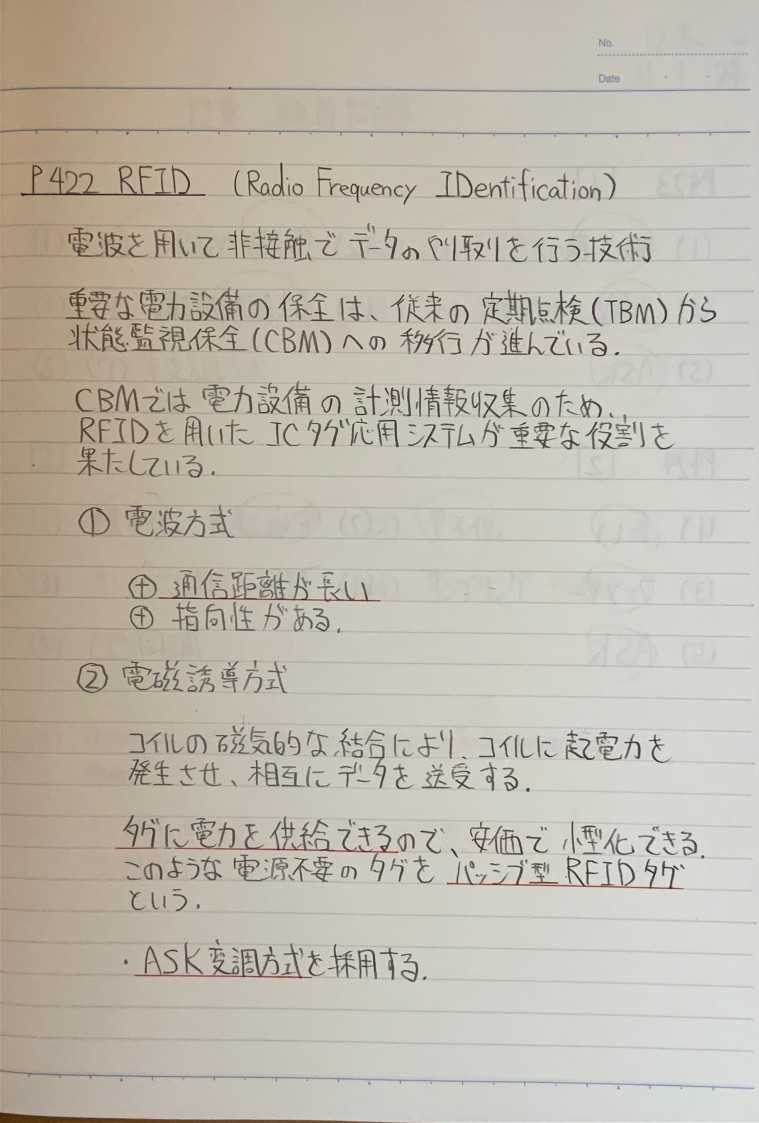 No.
Date
P422 RFID (Radio Frequency IDentification)
電波を用いて非接触でデータのやり取りを行う技術
重要な電力設備の保全は、従来の定期点検(TBM)から
状態監視保全(CBM)への移行が進んでいる.
CBMでは電力設備の計測情報収集のため、
RFIDを用いたICタグ応用システムが重要な役割を
果たしている.
① 電波方式
⊕ 通信距離が長い
⊕ 指向性がある.
② 電磁誘導方式
コイルの磁気的な結合により、コイルに起電力を
発生させ、相互にデータを送受する.
タグに電力を供給できるので、安価で小型化できる.
このような電源不要のタグをパッシブ型RFIDタグ
という.
・ASK変調方式を採用する.